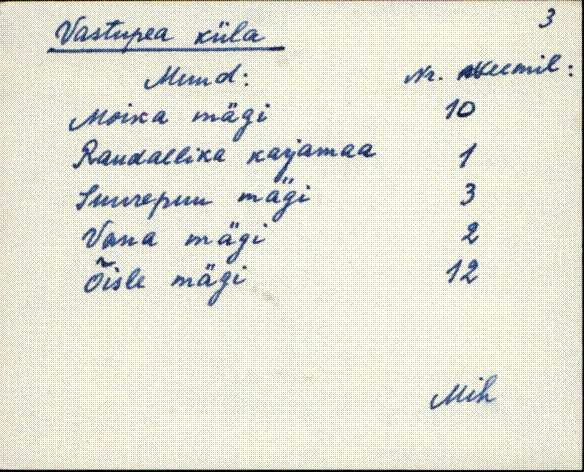 3
Vastupea küla
Muud: Nr. skeemil:
Moika mägi 10
Raudallika karjamaa 1
Suurepuu mägi 3
Vana mägi 2
Õisle mägi 12
Mih